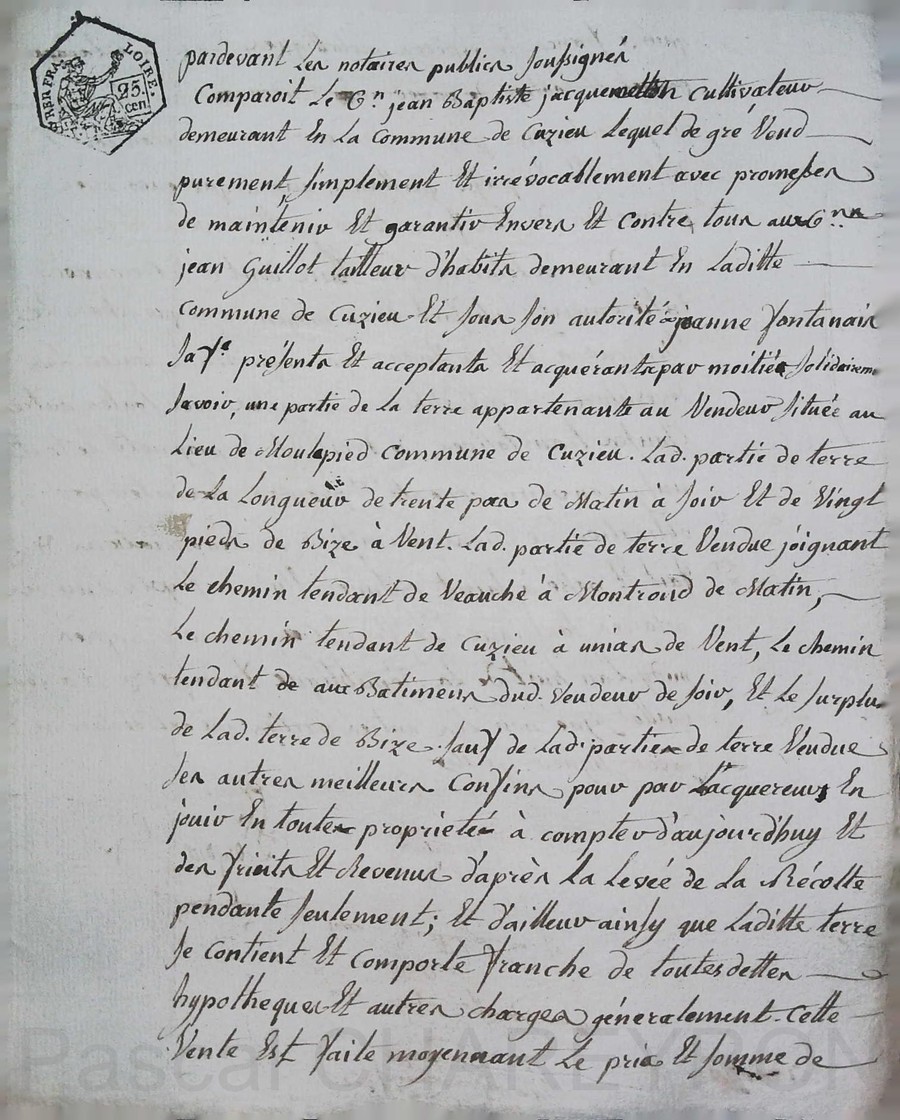 REP. FRA.
LOIRE.
25.
cen
pardevant Les notaires publics soussignés
Comparoit Le C.n jean Baptiste jacquemetton cultivateur
demeurant En La Commune de Cuzieu Lequel de gré Vend
purement, simplement Et irrévocablement avec promesses
de maintenir Et garantir Envers Et Contre tous aux C.ns
jean Guillot tailleur d'habits demeurant En Laditte
Commune de Cuzieu Et sous son autorité a jeanne fontanais
sa fe présents Et acceptants Et acquérants par moitiés solidairem.
savoir, une partie de La terre appartenante au Vendeur située au
Lieu de Moulapied Commune de Cuzieu. Lad. partie de terre
de La Longueur de trente pas de Matin à soir Et de Vingt
pieds de Bize à Vent. Lad. partie de terre Vendue joignant
Le chemin tendant de Veauche à Montrond de Matin,
Le chemin tendant de Cuzieu à unias de Vent, Le chemin
tendant de aux Batimens dud. Vendeur de soir, Et Le surplus
de Lad. terre de Bize. sauf de Lad. partie de terre Vendue
ses autres meilleurs Confins pour par L'acquereurs En
jouir En toute proprieté à compter d'aujourd'huy Et
des fruits Et Revenus d'après La Levée de La Récolte
pendante seulement; Et d'ailleur ainsy que Laditte terre
se Contient Et Comporte franche de toutes dettes
hypotheques Et autres charges généralement. Cette
Vente Est faite moyennant Le prix Et somme de
Pascal CHAREYRON